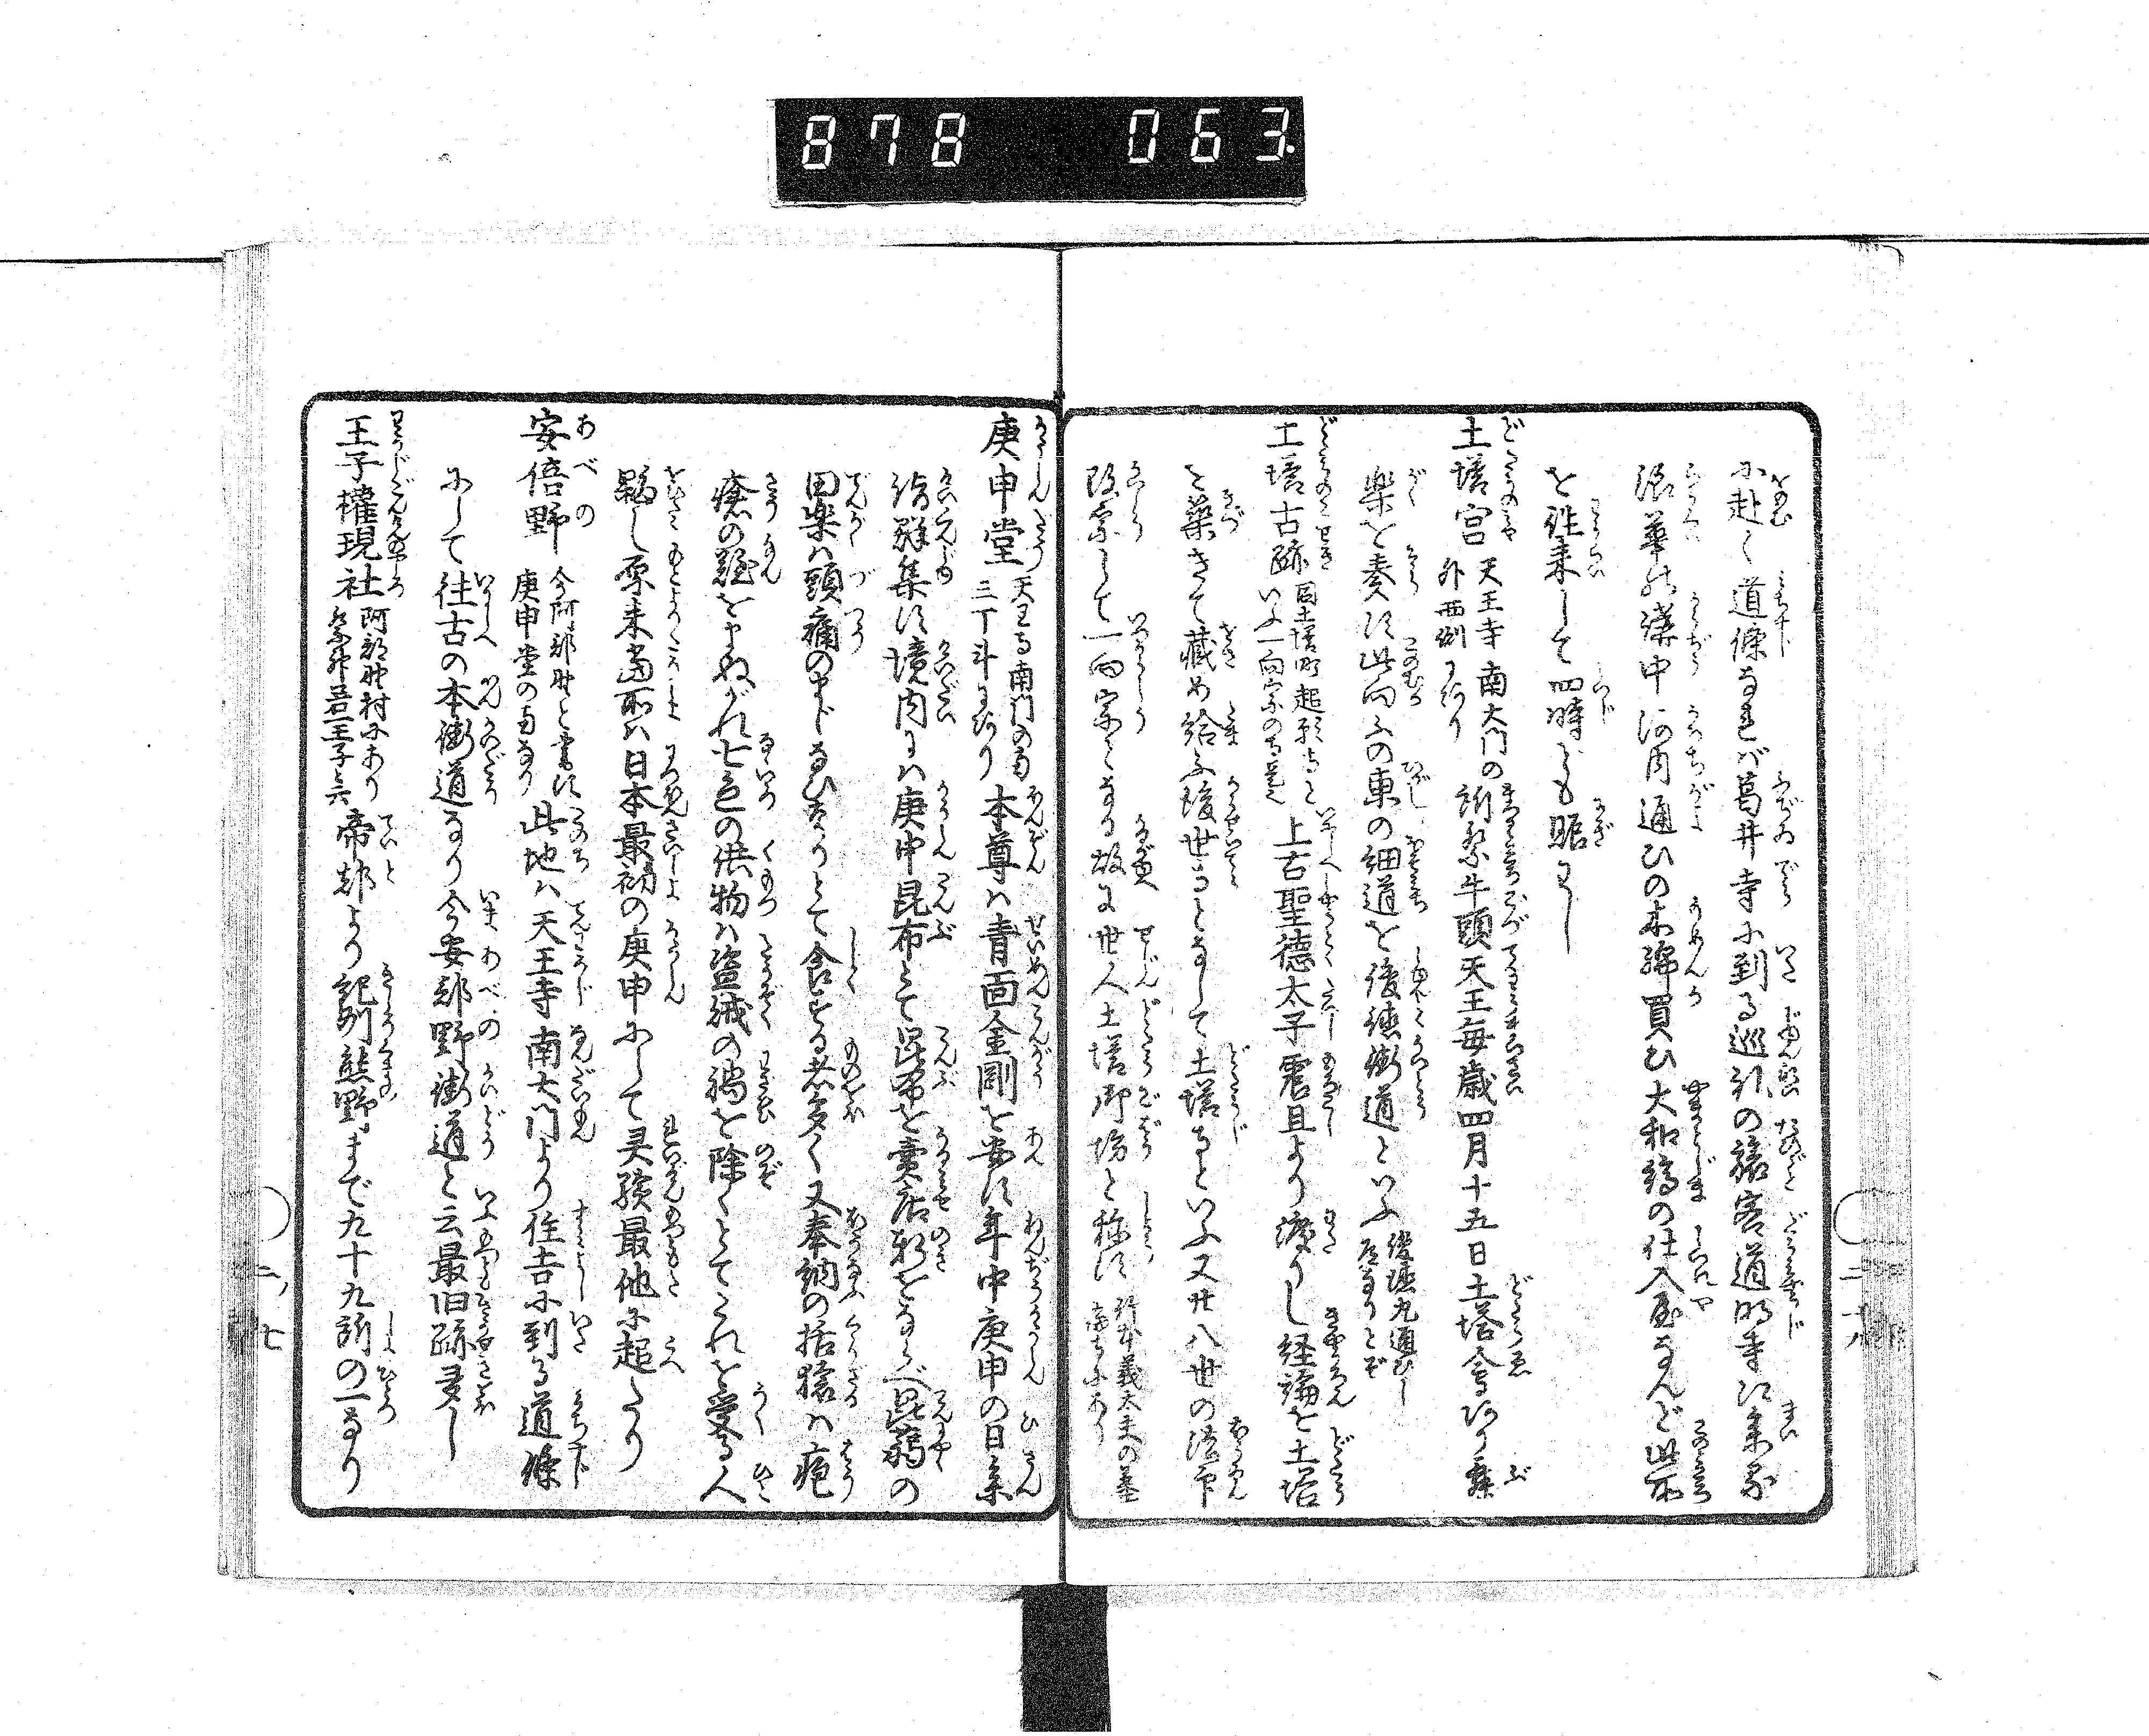 878 063
に赴く道條なれば葛井寺に到る巡礼の旅客道明寺に参る
浪華の講中河内通ひの木綿買ひ大和縞の仕入屋なんど此所
を往来して四時とも賑わし
土塔宮 天王寺南大門の外西側にあり 所祭牛頭天王毎歳四月十五日土塔会あり舞
楽を奏す此向ふの東の細道を後徳街道といふ
土塔古跡 同土塔町超願寺といふ一向宗の寺是也 上古聖徳太子震旦より渡りし経論を土塔
を築きて蔵め給ふ後世寺となして土塔寺といふ又廿八世の法印
改宗して一向宗となる故に世人土塔御坊と称す 竹本義太夫の墓当寺にあり
庚申堂 天王寺南門の南三丁斗にあり 本尊は青面金剛を安す年中庚申の日参
詣群集す境内には庚申昆布とて昆布を売店軒をならべ昆蒻の
田楽は頭痛のまじなひなりとて食する者多く又奉納の括猿は疱
瘡の難をまぬがれ七色の供物は盗賊の禍を除くとてこれを受る人
夥し原来当所は日本最初の庚申にして灵験最他に超たり
安倍野 今阿部野と書す庚申堂の南なり 此地は天王寺南大門より住吉に到る道條
にして往古の本街道なり今安部野街道と云最旧跡多し
王子権現社 阿部野村にあり祭神若一王子と云 帝都より紀州熊野まで九十九所の一なり
二ノ七